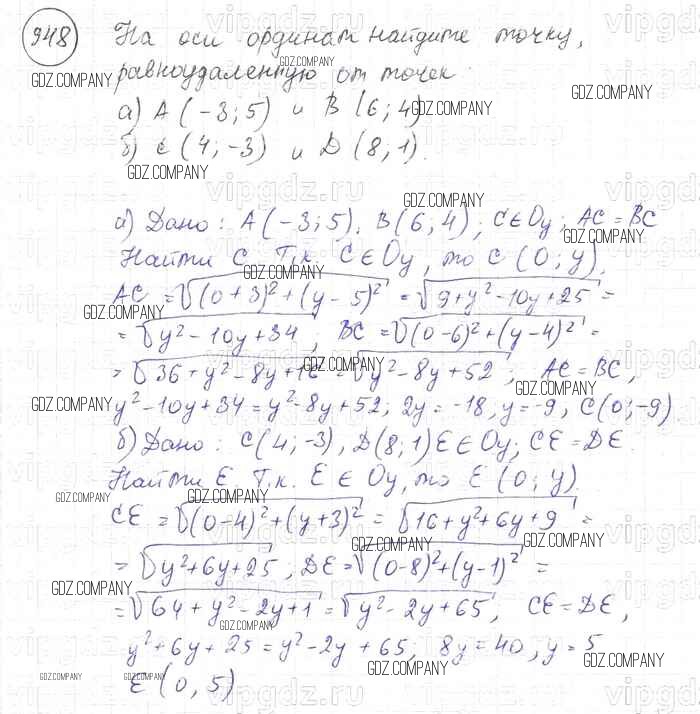 948 На оси ординат найдите точку,
равноудаленную от точек
а) A (-3; 5) и B (6; 4)
б) C (4; -3) и D (8; 1).
а) Дано: A(-3; 5), B(6; 4); C∈Oy; AC = BC
Найти C. Т.к. C∈Oy, то C (0; y).
AC = √((0+3)²+(y-5)²) = √(9+y²-10y+25) =
= √(y²-10y+34), BC = √((0-6)²+(y-4)²) =
= √(36+y²-8y+16) = √(y²-8y+52); AC = BC,
y²-10y+34 = y²-8y+52; 2y = -18, y = -9, C(0; -9)
б) Дано: C(4; -3), D(8; 1) E∈Oy; CE = DE.
Найти E. Т.к. E∈Oy, то E (0; y).
CE = √((0-4)²+(y+3)²) = √(16+y²+6y+9) =
= √(y²+6y+25), DE = √((0-8)²+(y-1)²) =
= √(64+y²-2y+1) = √(y²-2y+65), CE = DE,
y²+6y+25 = y²-2y+65; 8y = 40, y = 5
E (0, 5)
GDZ.COMPANY
vipgdz.ru